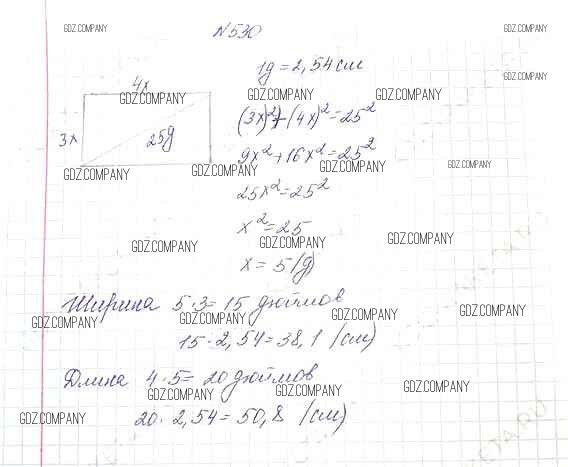 GDZ.COMPANY №530 GDZ.COMPANY
1д = 2,54 см
GDZ.COMPANY
4x
GDZ.COMPANY GDZ.COMPANY GDZ.COMPANY
(3x)²+(4x)²=25²
3x 25д
9x²+16x²=25²
GDZ.COMPANY GDZ.COMPANY GDZ.COMPANY
25x²=25²
x²=25
GDZ.COMPANY GDZ.COMPANY GDZ.COMPANY
x = 5(д)
Ширина 5·3=15 дюймов
GDZ.COMPANY GDZ.COMPANY GDZ.COMPANY GDZ.COMPANY
15·2,54=38,1 (см)
Длина 4·5=20 дюймов
GDZ.COMPANY GDZ.COMPANY GDZ.COMPANY
20·2,54=50,8 (см)
GDZ.COMPANY GDZ.COMPANY